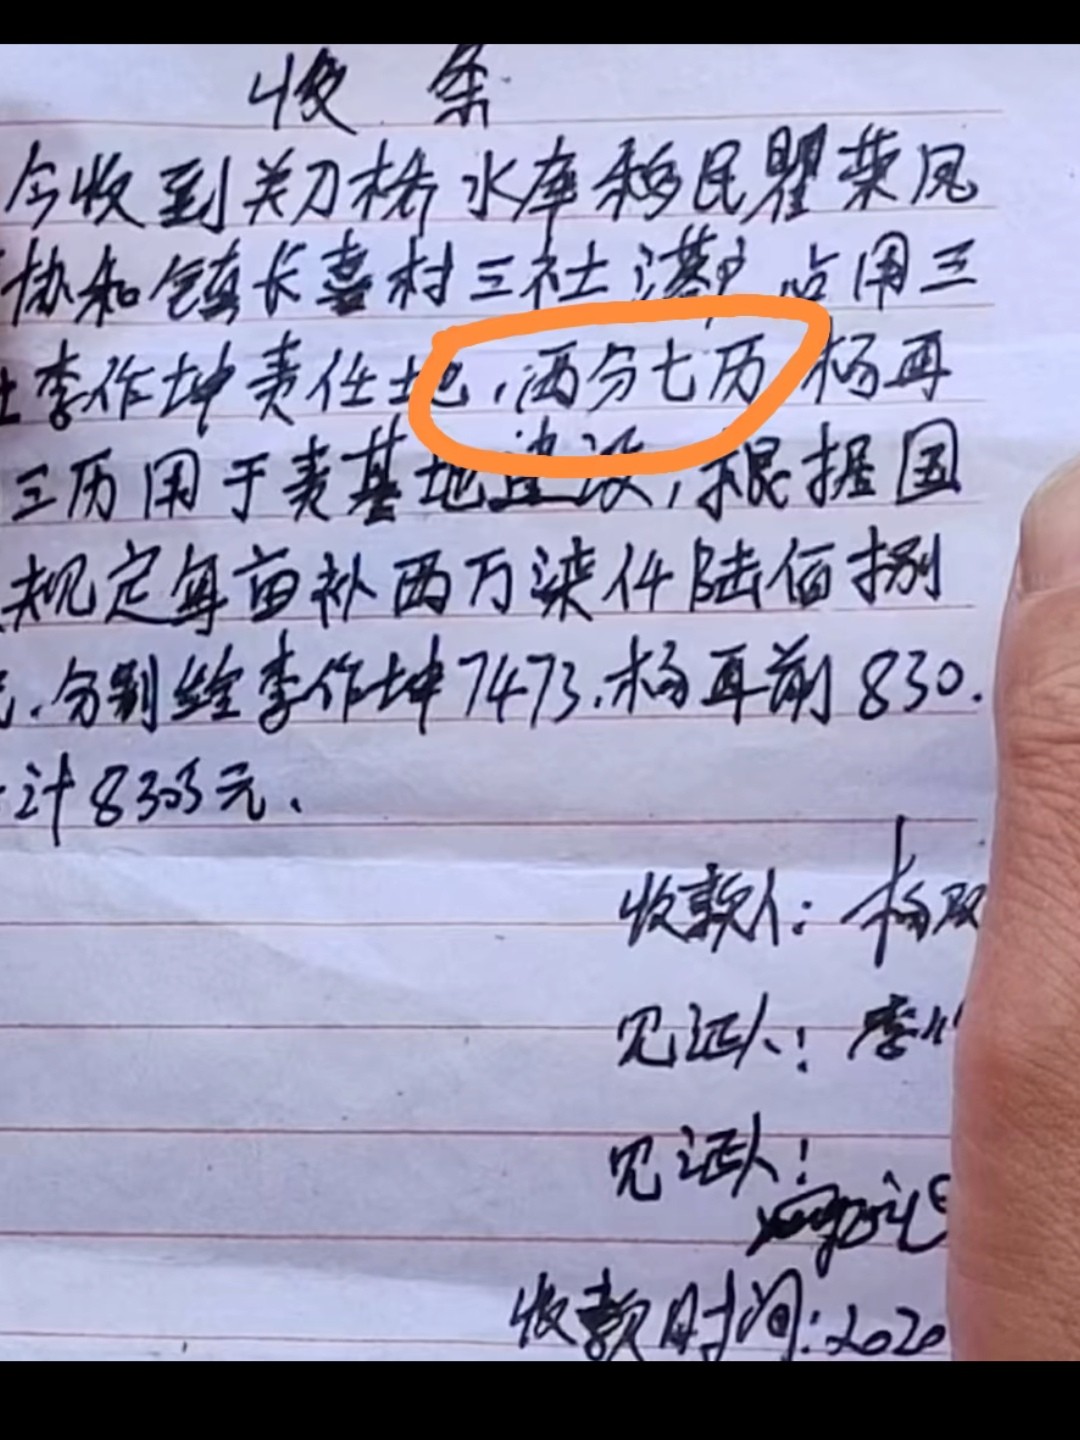 收 条
今收到关刀桥水库移民瞿荣凤
协和镇长喜村三社 占用三
社李作坤责任地,两分七历 杨再
三历用于麦基地建设,根据国
规定每亩补两万柒仟陆佰捌
元.分别给李作坤7473.杨再前830.
计8303元.
收款人: 杨
见证人: 李
见证人:
收款时间:2020